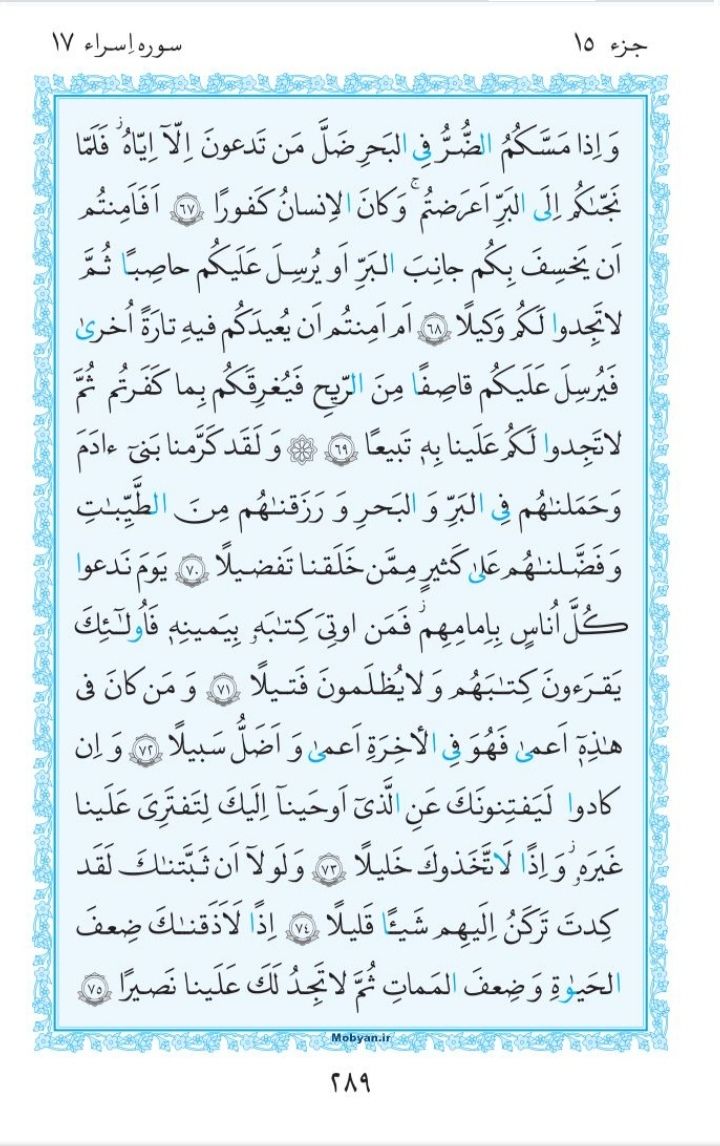 جزء ۱۵
سوره اِسراء ۱۷
وَ اِذا مَسَّكُمُ الضُّرُّ فِي البَحرِ ضَلَّ مَن تَدعونَ اِلّآ اِيّاهُ ۖ فَلَمّا
نَجّىٰكُم اِلَى البَرِّ اَعرَضتُم ۚ وَ كانَ الاِنسانُ كَفورًا ﴿۶۷﴾ اَفَاَمِنتُم
اَن يَخسِفَ بِكُم جانِبَ البَرِّ اَو يُرسِلَ عَلَيكُم حاصِبًا ثُمَّ
لاتَجِدوا لَكُم وَكيلًا ﴿۶۸﴾ اَم اَمِنتُم اَن يُعيدَكُم فيهِ تارَةً اُخرىٰ
فَيُرسِلَ عَلَيكُم قاصِفًا مِنَ الرّيحِ فَيُغرِقَكُم بِما كَفَرتُم ثُمَّ
لاتَجِدوا لَكُم عَلَينا بِهٖ تَبيعًا ﴿۶۹﴾ وَ لَقَد كَرَّمنا بَنىٓ ءادَمَ
وَ حَمَلنٰهُم فِي البَرِّ وَ البَحرِ وَ رَزَقنٰهُم مِنَ الطَّيِّبٰتِ
وَ فَضَّلنٰهُم عَلىٰ كَثيرٍ مِمَّن خَلَقنا تَفضيلًا ﴿۷۰﴾ يَومَ نَدعوا
كُلَّ اُناسٍ بِاِمامِهِم ۖ فَمَن اوتِىَ كِتٰبَهٗ بِيَمينِهٖ فَاُولٰٓئِكَ
يَقرَءونَ كِتٰبَهُم وَ لايُظلَمونَ فَتيلًا ﴿۷۱﴾ وَ مَن كانَ فى
هٰذِهٖٓ اَعمىٰ فَهُوَ فِي الأخِرَةِ اَعمىٰ وَ اَضَلُّ سَبيلًا ﴿۷۲﴾ وَ اِن
كادوا لَيَفتِنونَكَ عَنِ الَّذىٓ اَوحَينآ اِلَيكَ لِتَفتَرِىَ عَلَينا
غَيرَهٗ ۖ وَ اِذًا لَاتَّخَذوكَ خَليلًا ﴿۷۳﴾ وَ لَولآ اَن ثَبَّتنٰكَ لَقَد
كِدتَ تَركَنُ اِلَيهِم شَيـًٔا قَليلًا ﴿۷۴﴾ اِذًا لَاَذَقنٰكَ ضِعفَ
الحَيوٰةِ وَ ضِعفَ المَماتِ ثُمَّ لاتَجِدُ لَكَ عَلَينا نَصيرًا ﴿۷۵﴾
Mobyan.ir
۲۸۹